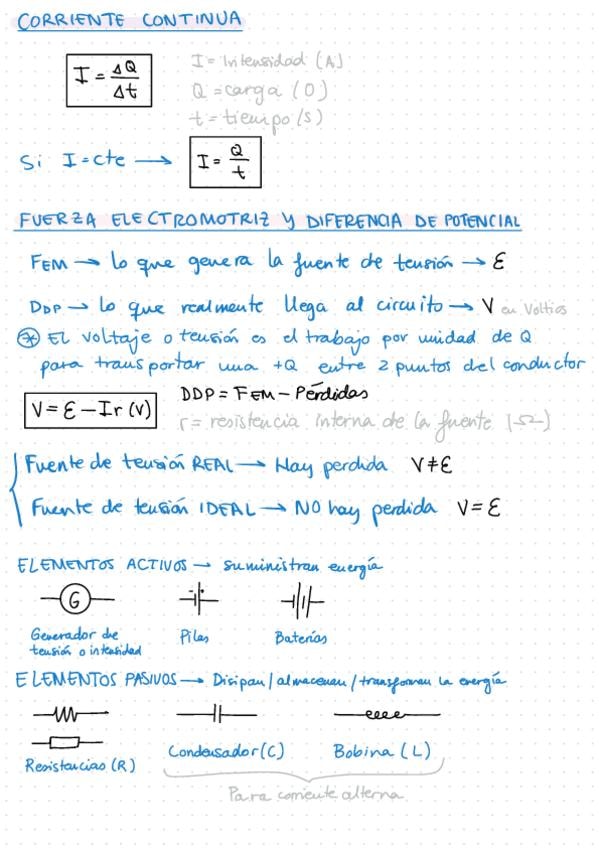 CORRIENTE CONTINUA
I = ΔQ/Δt
I = Intensidad (A)
Q = carga (O)
t = tiempo (s)
Si I = cte → I = Q/t
FUERZA ELECTROMOTRIZ Y DIFERENCIA DE POTENCIAL
FEM → Lo que genera la fuente de tensión → Ɛ
DDP → Lo que realmente llega al circuito → V en Voltios
* El voltaje o tensión es el trabajo por unidad de Q
para transportar una +Q entre 2 puntos del conductor
V = Ɛ - Ir (V)
DDP = FEM - Pérdidas
r = resistencia interna de la fuente (Ω)
Fuente de tensión REAL → Hay perdida V ≠ Ɛ
Fuente de tensión IDEAL → NO hay perdida V = Ɛ
ELEMENTOS ACTIVOS → suministran energía
G
Generador de
tensión o intensidad
Pilas
Baterías
ELEMENTOS PASIVOS → Disipan/almacenan/transforman la energía
Resistencias (R)
Condensador (C)
Bobina (L)
Para corriente alterna